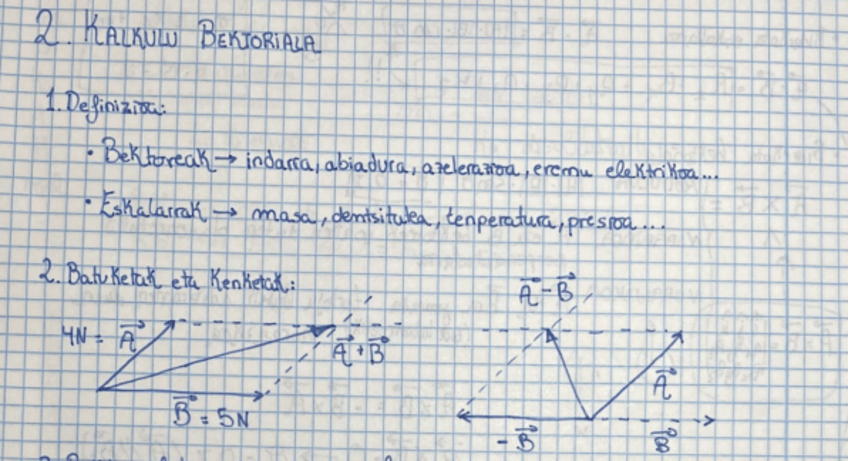 2. KALKULU BEKTORIALA
1. Definizioa:
• Bektoreak → indarra, abiadura, azelerazioa, eremu elektrikoa...
• Eskalarrak → masa, dentsitatea, tenperatura, presioa...
2. Batuketak eta Kenketak:
4N = A⃗
A⃗ + B⃗
B⃗ = 5N
A⃗ - B⃗
A⃗
-B⃗
B⃗